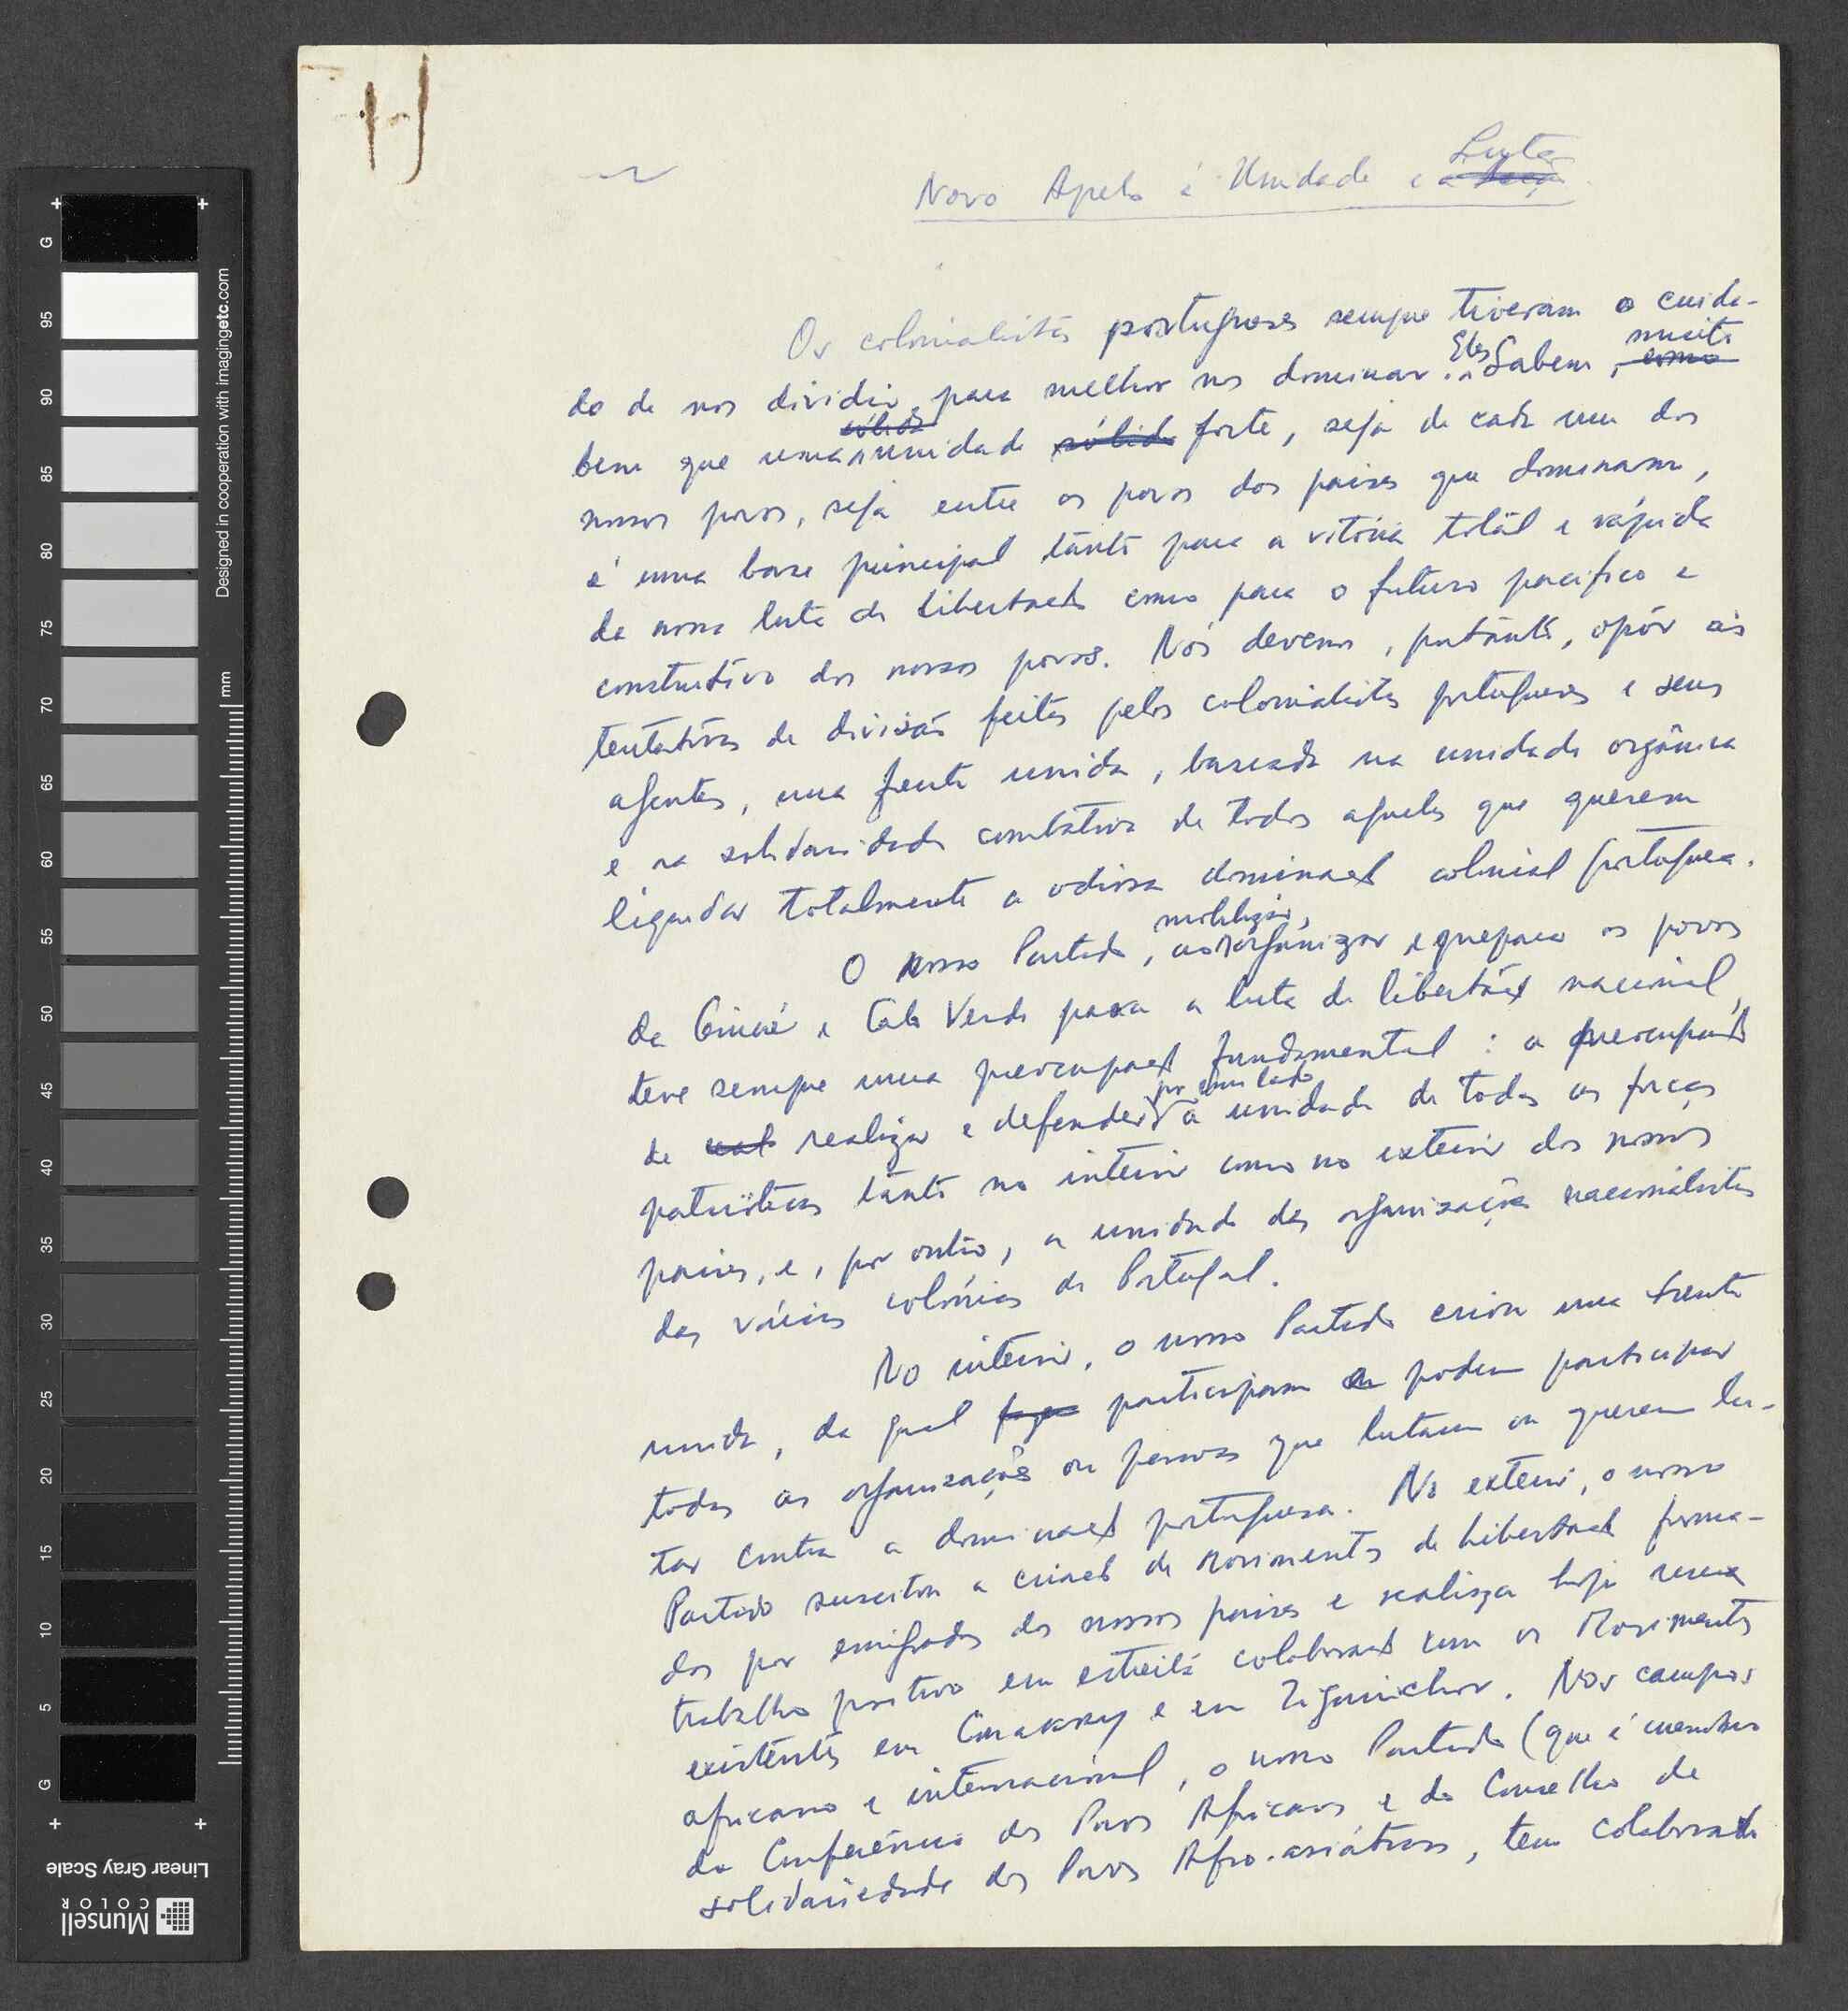 Novo Apelo à Unidade e à Luta
Os colonialistas portugueses sempre tiveram o cuida-
do de nos dividir, para melhor nos dominar. Eles Sabem, muito
bem que uma unidade forte, seja de cada um dos
nossos povos, seja entre os povos dos países que dominam,
é uma base principal tanto para a vitória totál e rápida
da nossa luta de libertação como para o futuro pacífico e
construtivo dos nossos povos. Nós devemos, portanto, opôr às
tentativas de divisão feitas pelos colonialistas portugueses e seus
agentes, uma frente unida, baseada na unidade orgânica
e na solidariedade combativa de todos aqueles que querem
liquidar totalmente a odiosa dominação colonial portuguesa.
O nosso Partido, ao mobilizar, organizar e preparar os povos
da Guiné e Cabo Verde para a luta de libertação nacional,
teve sempre uma preocupação fundamental: a preocupação
de realizar e defender por um lado a unidade de todas as forças
patrióticas tanto no interior como no exterior dos nossos
países, e, por outro, a unidade das organizações nacionalistas
das várias colónias de Portugal.
No interior, o nosso Partido criou uma frente
unida, da qual participam ou podem participar
todas as organizações ou pessoas que lutam ou querem lu-
tar contra a dominação portuguesa. No exterior, o nosso
Partido suscitou a criação de movimentos de libertação forma-
dos por emigrados dos nossos países e realiza hoje um
trabalho positivo em estreita colaboração com os Movimentos
existentes em Conakry e em Ziguinchor. Nos campos
africano e internacional, o nosso Partido (que é membro
da Conferência dos Povos Africanos e do Conselho de
solidariedade dos Povos Afro-asiáticos, tem colaborado
G 95 90 85 80 75 70 65 60 55 50 45 40 35 30 25 20 15 10 5 G
Designed in cooperation with imagingetc.com
mm
Linear Gray Scale
Munsell
COLOR